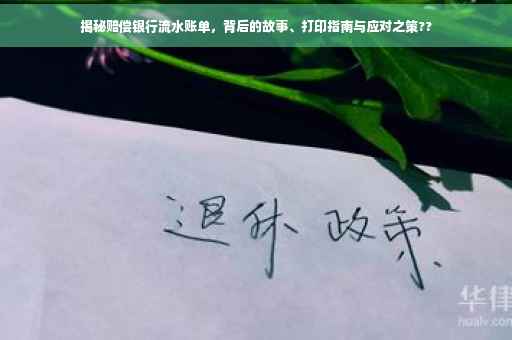 揭秘赔偿银行流水账单，背后的故事、打印指南与应对之策??
退休 政策
华律
hualv.com